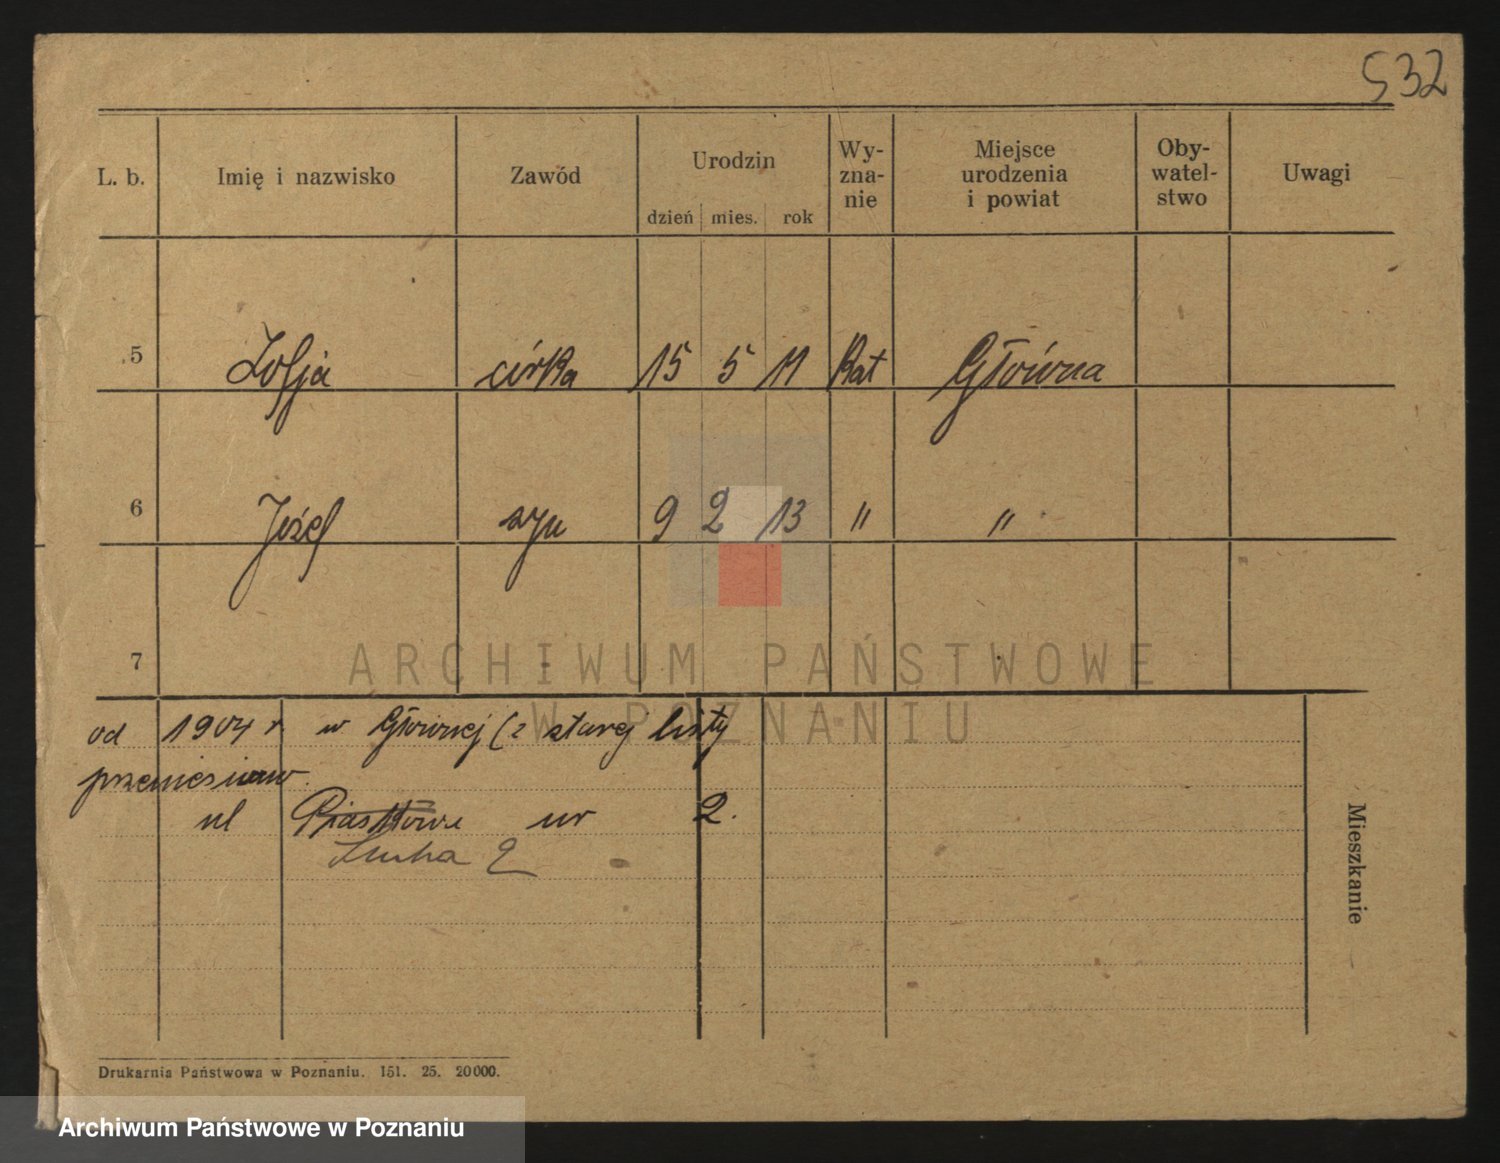 532
L. b. Imię i nazwisko Zawód Urodzin dzień mies. rok Wy-zna-nie Miejsce urodzenia i powiat Oby-watel-stwo Uwagi
5 Zofja córka 15 5 11 Kat Główna
6 Józef syn 9 2 13 " "
7
ARCHIWUM PAŃSTWOWE
W POZNANIU
od 1904 r. w Głównej (z starej listy
przeniesiono.
ul Piastowa nr 2.
2
Mieszkanie
Drukarnia Państwowa w Poznaniu. 151. 25. 20000.
Archiwum Państwowe w Poznaniu